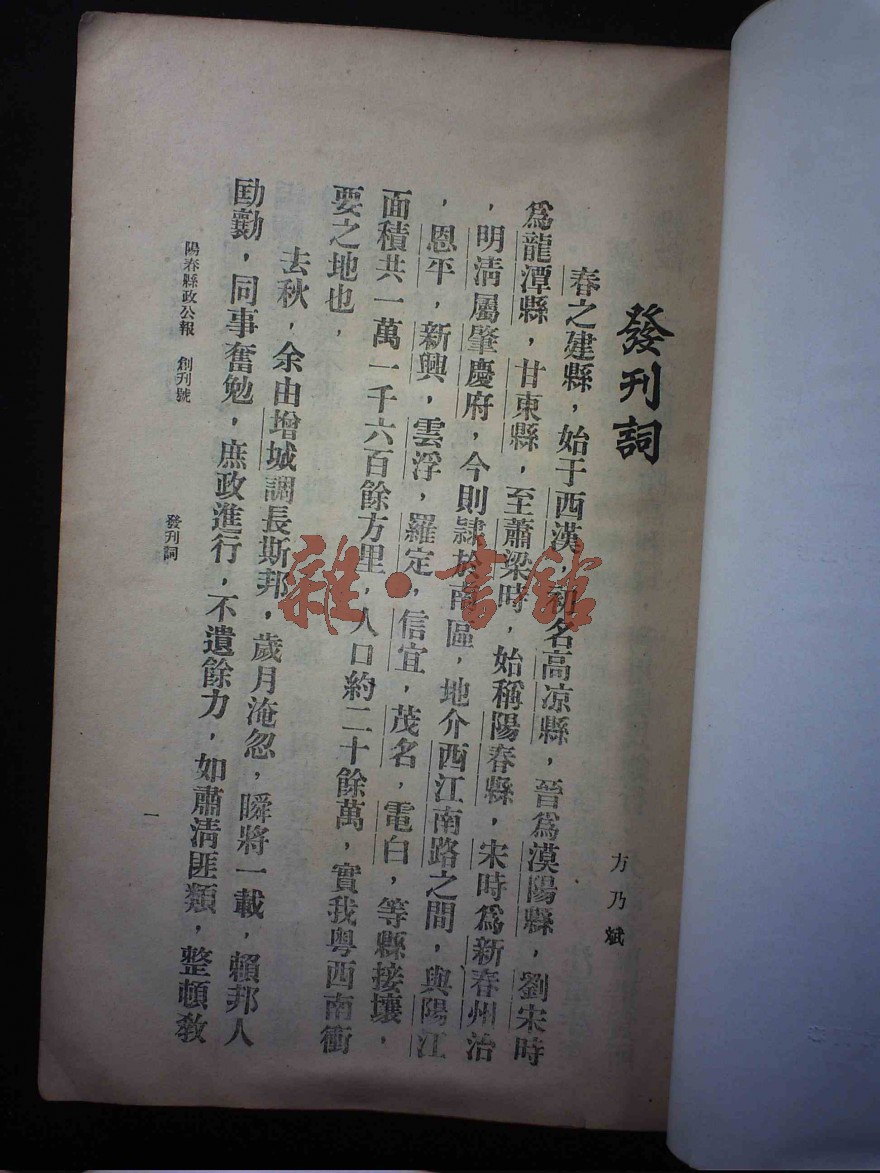 發刊詞
方乃斌
春之建縣，始于西漢，初名高凉縣，晉爲漠陽縣，劉宋時
爲龍潭縣，甘東縣，至蕭梁時，始稱陽春縣，宋時爲新春州治
，明清屬肇慶府，今則隷於南區，地介西江南路之間，與陽江
，恩平，新興，雲浮，羅定，信宜，茂名，電白，等縣接壤，
面積共一萬一千六百餘方里，人口約二十餘萬，實我粤西南衝
要之地也，
去秋，余由增城調長斯邦，歲月淹忽，瞬將一載，賴邦人
劻勷，同事奮勉，庶政進行，不遺餘力，如肅清匪類，整頓敎
陽春縣政公報 創刊號 發刊詞 一
雜·書館